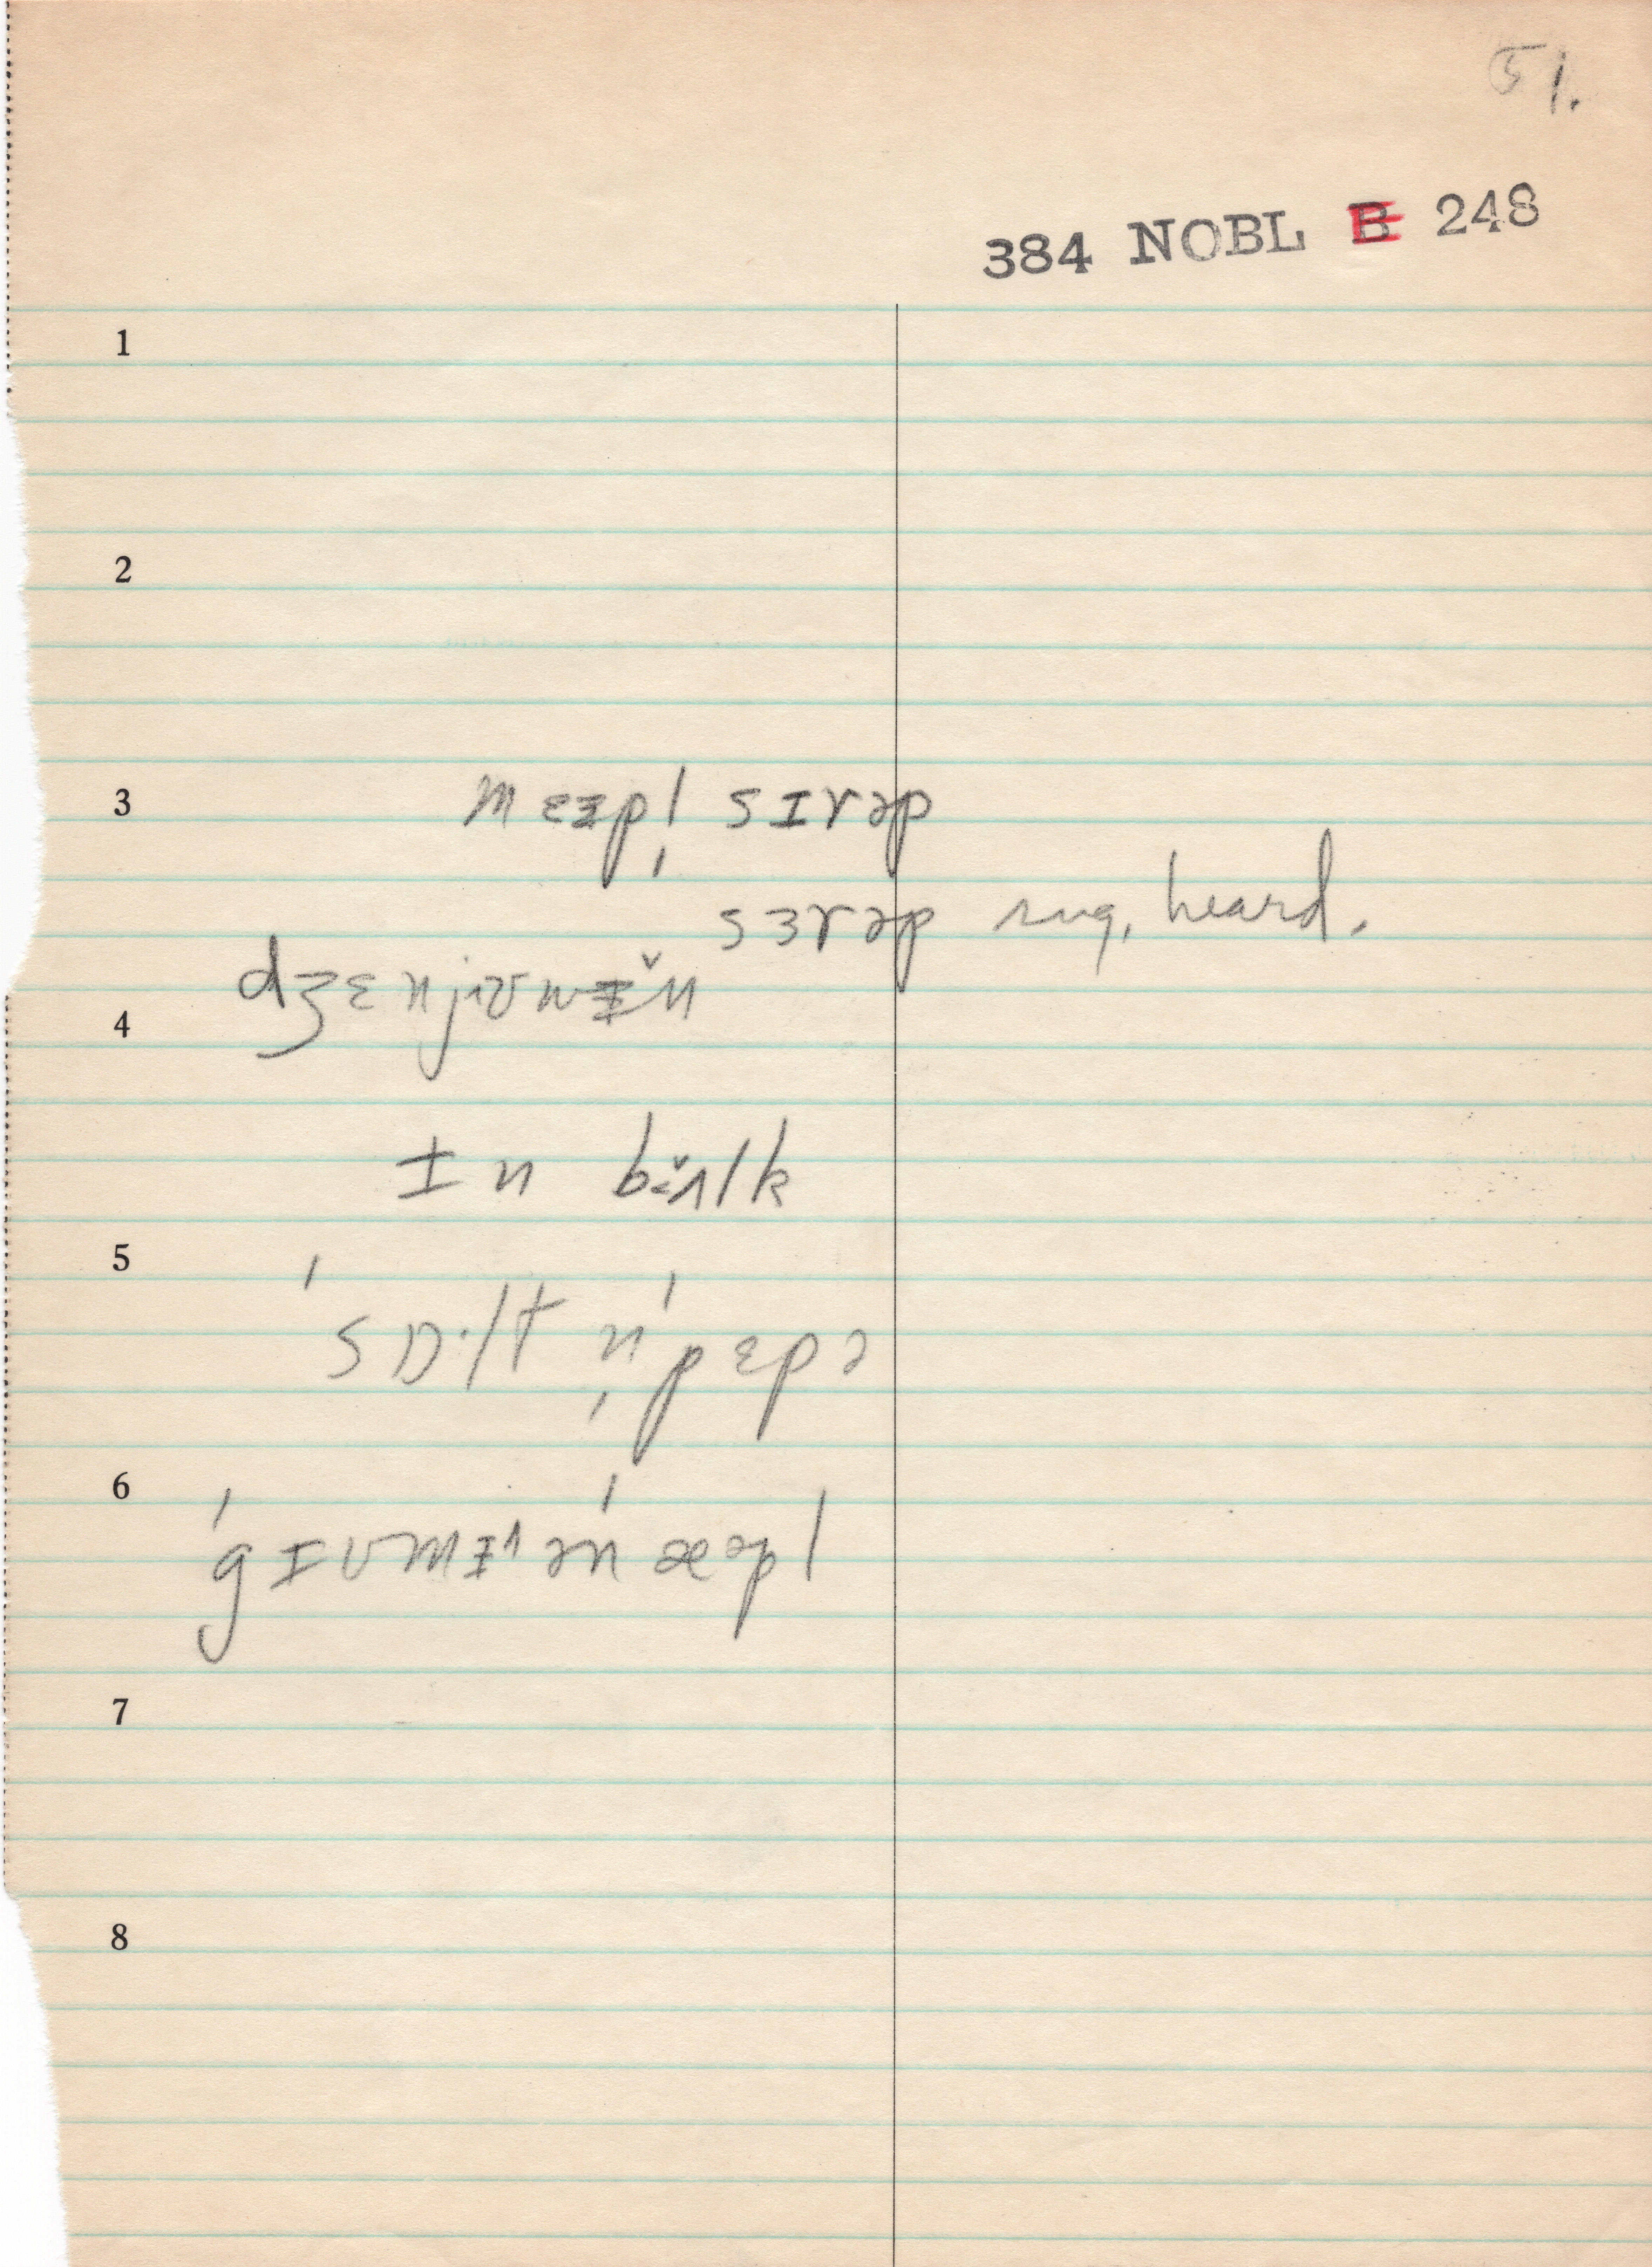 51.
384 NOBL B 248
1
2
3 mɛᵻpl̩ sɪrəp
sɜrəp sug. heard.
dʒɛnjɪʊwᵻ̆n
4
ɪn bɜ̆ʌlk
5
ˈsɒ·lt n̩ ˈpɛpə
6
ˈgɪʊmᵻ^ ən ˈæəpl
7
8